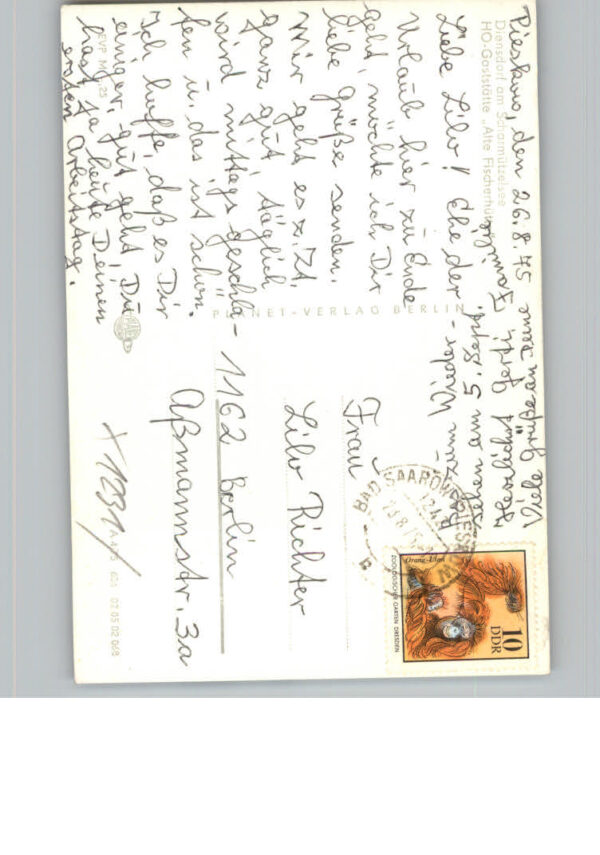 Diensdorf am Scharmützelsee
HO-Gaststätte „Alte Fischerhütte"
Pieskow, den 26.8.75
Liebe Lilo! Ehe der
Urlaub hier zu Ende
geht, möchte ich Dir
liebe Grüße senden.
Mir geht es z. Zt.
ganz gut, täglich
wird mittags geschla-
fen u. das ist schön.
Ich hoffe, daß es Dir
einiger. gut geht. Du
hast ja heute Deinen
ersten Arbeitstag.
Bis zum Wieder-
sehen am 5. Sept.
Herzlichst
Viele Grüße an Deine
Familie
PLANET-VERLAG BERLIN
EVP M 0,25
Frau
Lilo Richter
1162 Berlin
Aßmannstr. 3a
BAD SAAROW-PIESKOW
124
Orang-Utan
ZOOLOGISCHER GARTEN DRESDEN
10
DDR
1231